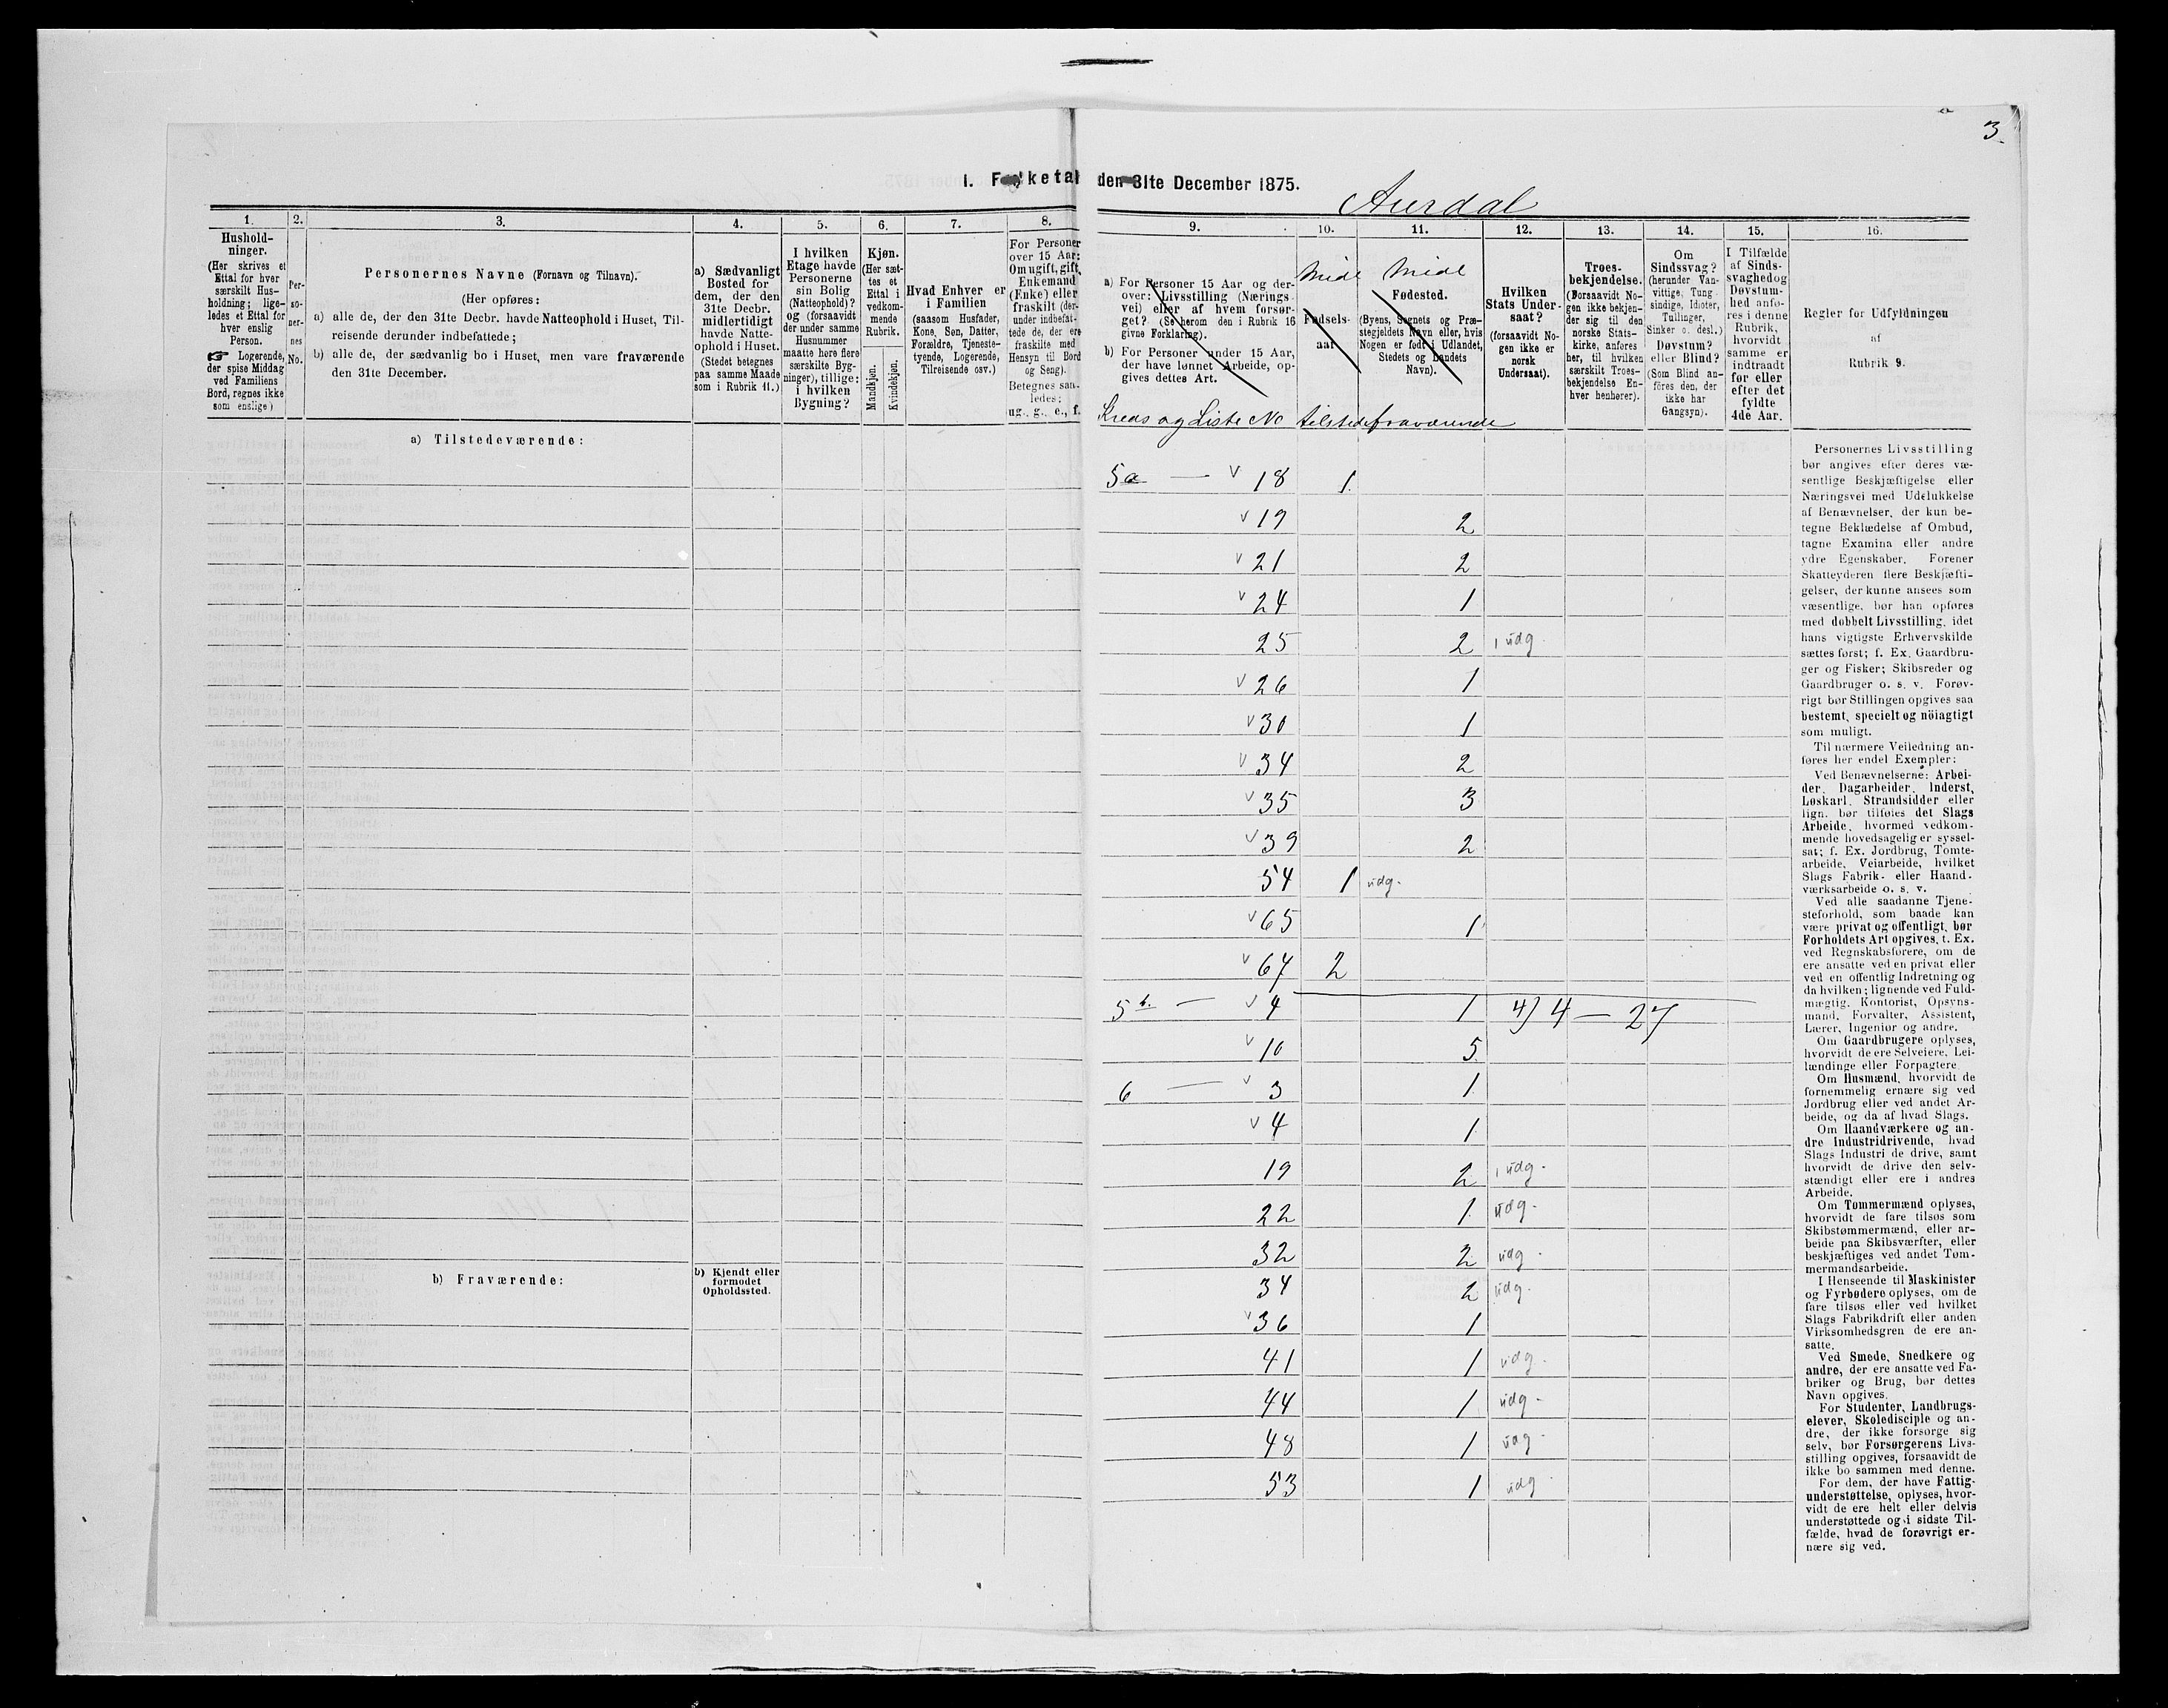 3.
1. Folketal den 31te December 1875.
Aurdal
1.
2.
3.
4.
5.
6.
7.
8.
9.
10.
11.
12.
13.
14.
15.
16.
Hushold-
ninger.
(Her skrives et
Ettal for hver
særskilt Hus-
holdning; lige-
ledes et Ettal for
hver enslig
Person.
☞ Logerende,
der spise Middag
ved Familiens
Bord, regnes ikke
som enslige)
Per-
so-
ner-
nes
No.
Personernes Navne (Fornavn og Tilnavn).
(Her opføres:
a) alle de, der den 31te Decbr. havde Natteophold i Huset, Til-
reisende derunder indbefattede;
b) alle de, der sædvanlig bo i Huset, men vare fraværende
den 31te December.
a) Sædvanligt
Bosted for
dem, der den
31te Decbr.
midlertidigt
havde Natte-
ophold i Huset.
(Stedet betegnes
paa samme Maade
som i Rubrik 11.)
I hvilken
Etage havde
Personerne
sin Bolig
(Natteophold)?
og (forsaavidt
der under samme
Husnummer
maatte høre flere
særskilte Byg-
ninger), tillige:
i hvilken
Bygning?
Kjøn.
(Her sæt-
tes et
Ettal i
vedkom-
mende
Rubrik.
Mandkjøn.
Kvindekjøn.
Hvad Enhver er
i Familien
(saasom Husfader,
Kone, Søn, Datter,
Forældre, Tjeneste-
tyende, Logerende,
Tilreisende osv.)
For Personer
over 15 Aar:
Om ugift, gift,
Enkemand
(Enke) eller
fraskilt (der-
under indbefat-
tede de, der ere
fraskilte med
Hensyn til Bord
og Seng).
Betegnes saa-
ledes:
ug., g., e., f.
a) For Personer 15 Aar og der-
over: Livsstilling (Nærings-
vei) eller af hvem forsør-
get? (Se herom den i Rubrik 16
givne Forklaring).
b) For Personer under 15 Aar,
der have lønnet Arbeide, op-
gives dettes Art.
Midl
Fødsels-
aar
Midl
Fødested.
(Byens, Sognets og Præ-
stegjeldets Navn eller, hvis
Nogen er født i Udlandet,
Stedets og Landets
Navn).
Hvilken
Stats Under-
saat?
(forsaavidt No-
gen ikke er
norsk
Undersaat).
Troes-
bekjendelse.
(Forsaavidt No-
gen ikke bekjen-
der sig til den
norske Stats-
kirke, anføres
her, til hvilken
særskilt Troes-
bekjendelse En-
hver henhører).
Om
Sindssvag?
(herunder Van-
vittige, Tung-
sindige, Idioter,
Tullinger,
Sinker o. desl.)
Døvstum?
eller Blind?
(Som Blind an-
føres den, der
ikke har
Gangsyn).
I Tilfælde
af Sinds-
svaghed og
Døvstum-
hed anfø-
res i denne
Rubrik,
hvorvidt
samme er
indtraadt
før eller
efter det
fyldte
4de Aar.
Regler for Udfyldningen
af
Rubrik 9.
Kreds og Liste No tilstede fraværende
a) Tilstedeværende:
5a — v 18 1.
v 19 2
v 21 2
v 24 1
25 2 1 udg.
v 26 1
v 30 1
v 34 2
v 35 3
v 39 2
54 1 udg.
v 65 1
v 67 2
5b. — v 4 1 4) 4 — 27
v 10 5.
6 — v 3 1.
v 4 1.
19 2 1 udg.
22 1. udg.
32 2. udg.
34 2 udg.
v 36 1
41 1 udg.
44 1. udg.
48 1 udg.
53 1 udg
b) Fraværende:
b) Kjendt eller
formodet
Opholdssted.
Personernes Livsstilling
bør angives efter deres væ-
sentlige Beskjæftigelse eller
Næringsvei med Udelukkelse
af Benævnelser, der kun be-
tegne Beklædelse af Ombud,
tagne Examina eller andre
ydre Egenskaber. Forener
Skatteyderen flere Beskjæfti-
gelser, der kunne ansees som
væsentlige, bør han opføres
med dobbelt Livsstilling, idet
hans vigtigste Erhvervskilde
sættes først; f. Ex. Gaardbru-
ger og Fisker; Skibsreder og
Gaardbruger o. s. v. Forøv-
rigt bør Stillingen opgives saa
bestemt, specielt og nöiagtigt
som muligt.
Til nærmere Veiledning an-
føres her endel Exempler:
Ved Benævnelserne: Arbei-
der, Dagarbeider, Inderst,
Løskarl, Strandsidder eller
lign. bør tilføies det Slags
Arbeide, hvormed vedkom-
mende hovedsagelig er syssel-
sat; f. Ex. Jordbrug, Tomte-
arbeide, Veiarbeide, hvilket
Slags Fabrik- eller Haand-
værksarbeide o. s. v.
Ved alle saadanne Tjene-
steforhold, som baade kan
være privat og offentligt, bør
Forholdets Art opgives, t. Ex.
ved Regnskabsførere, om de
ere ansatte ved en privat eller
ved en offentlig Indretning og
da hvilken; lignende ved Fuld-
mægtig, Kontorist, Opsyns-
mand, Forvalter, Assistent,
Lærer, Ingeniør og andre.
Om Gaardbrugere oplyses,
hvorvidt de ere Selveiere, Lei-
lændinge eller Forpagtere.
Om Husmænd, hvorvidt de
fornemmelig ernære sig ved
Jordbrug eller ved andet Ar-
beide, og da af hvad Slags.
Om Haandværkere og an-
dre Industridrivende, hvad
Slags Industri de drive, samt
hvorvidt de drive den selv-
stændigt eller ere i andres
Arbeide.
Om Tømmermænd oplyses,
hvorvidt de fare tilsøs som
Skibstømmermænd, eller ar-
beide paa Skibsværfter, eller
beskjæftiges ved andet Tøm-
mermandsarbeide.
I Henseende til Maskinister
og Fyrbødere oplyses, om de
fare tilsøs eller ved hvilket
Slags Fabrikdrift eller anden
Virksomhedsgren de ere an-
satte.
Ved Smede, Snedkere og
andre, der ere ansatte ved Fa-
briker og Brug, bør dettes
Navn opgives.
For Studenter, Landbrugs-
elever, Skoledisciple og an-
dre, der ikke forsørge sig
selv, bør Forsørgerens Livs-
stilling opgives, forsaavidt de
ikke bo sammen med denne.
For dem, der have Fattig-
understøttelse, oplyses, hvor-
vidt de ere helt eller delvis
understøttede og i sidste Til-
fælde, hvad de forøvrigt er-
nære sig ved.